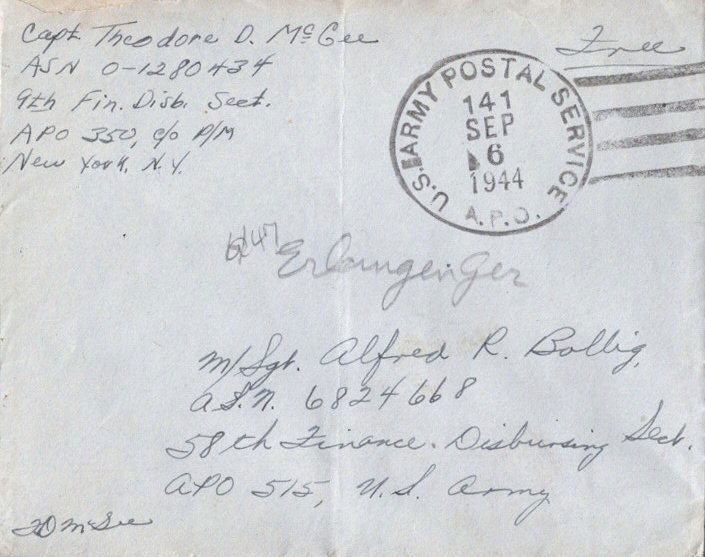 Capt. Theodore D. McGee
ASN O-1280434
9th Fin. Disb. Sect.
APO 350, c/o P/M
New York, N.Y.
Free
U.S. ARMY POSTAL SERVICE
141
SEP
6
1944
A.P.O.
Erlangen Ger
M/Sgt. Alfred R. Bolbig,
A.S.N. 6824668
58th Finance. Disbursing Sect.
APO 515, U.S. Army
TD McGee